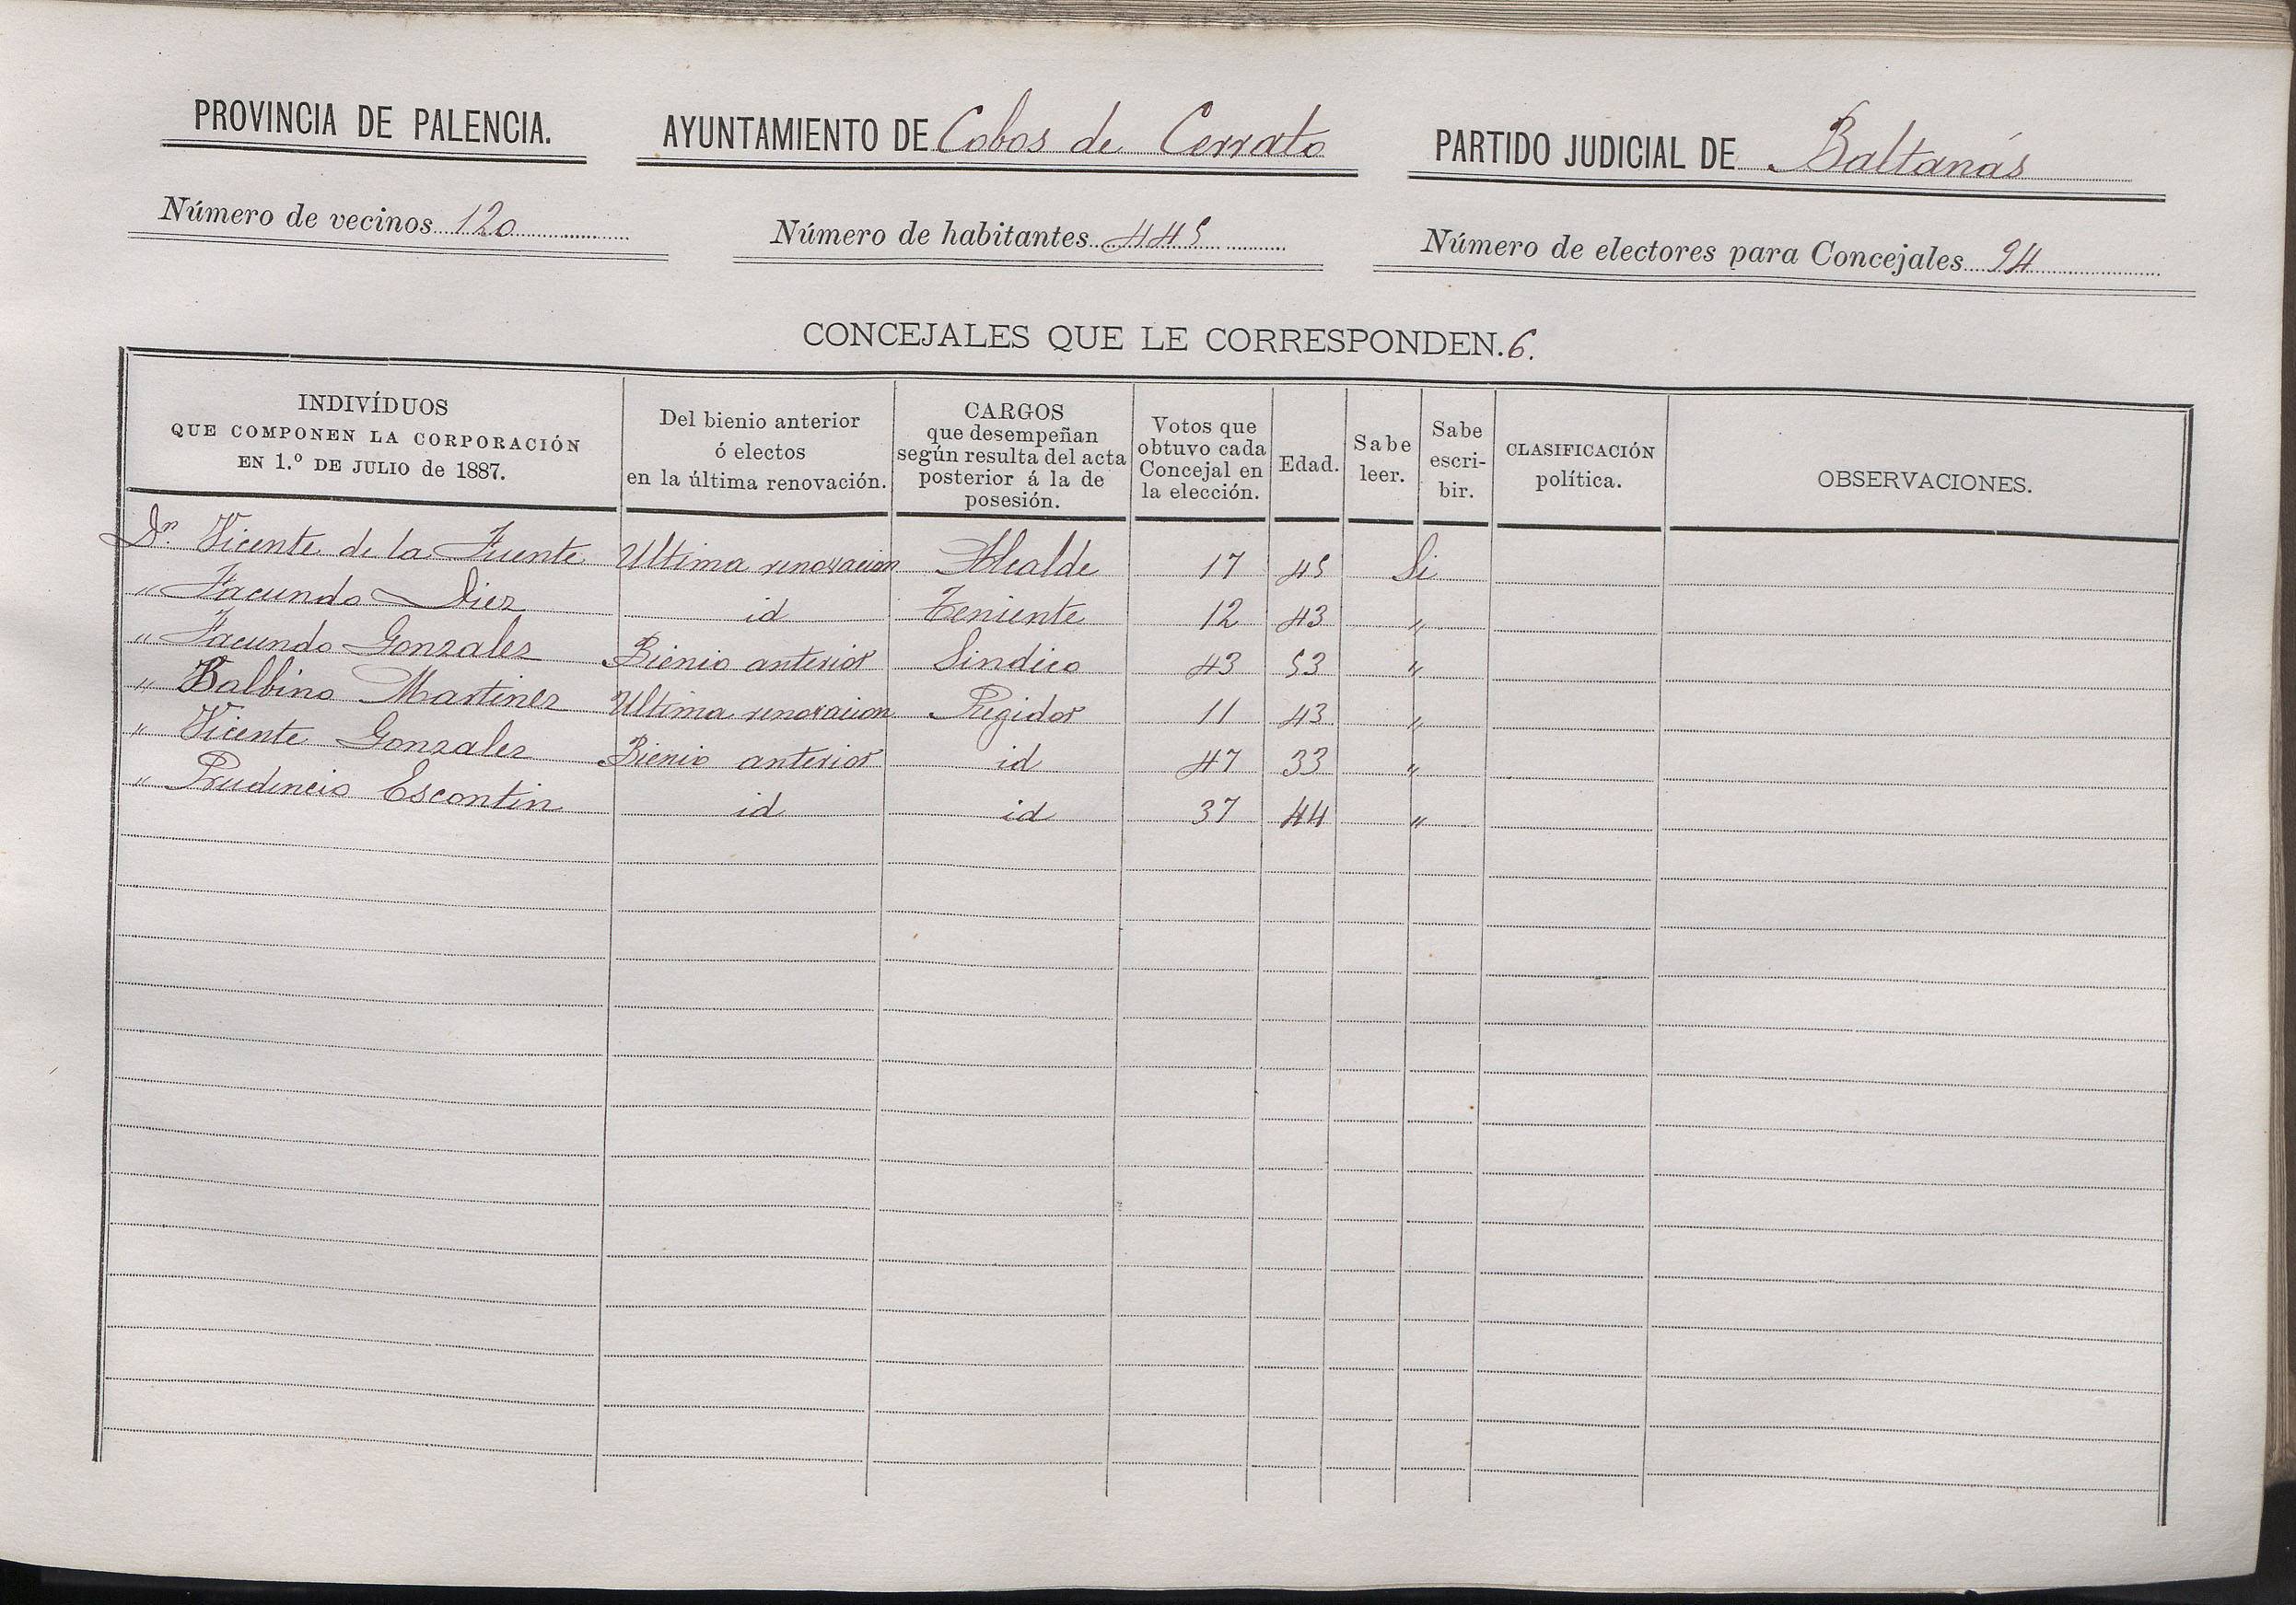 PROVINCIA DE PALENCIA. AYUNTAMIENTO DE Cobos de Cerrato PARTIDO JUDICIAL DE Baltanás
Número de vecinos 120 Número de habitantes 445 Número de electores para Concejales 94
CONCEJALES QUE LE CORRESPONDEN. 6.
INDIVÍDUOS
QUE COMPONEN LA CORPORACIÓN
EN 1.º DE JULIO de 1887.
Del bienio anterior
ó electos
en la última renovación.
CARGOS
que desempeñan
según resulta del acta
posterior á la de
posesión.
Votos que
obtuvo cada
Concejal en
la elección.
Edad.
Sabe
leer.
Sabe
escri-
bir.
CLASIFICACIÓN
política.
OBSERVACIONES.
Dn. Vicente de la Fuente Ultima renovacion Alcalde 17 45 Si
" Facundo Diez id Teniente 12 43 "
" Facundo Gonzalez Bienio anterior Sindico 43 53 "
" Balbino Martinez Ultima renovacion Regidor 11 43 "
" Vicente Gonzalez Bienio anterior id 47 33 "
" Prudencio Escontin id id 37 44 "